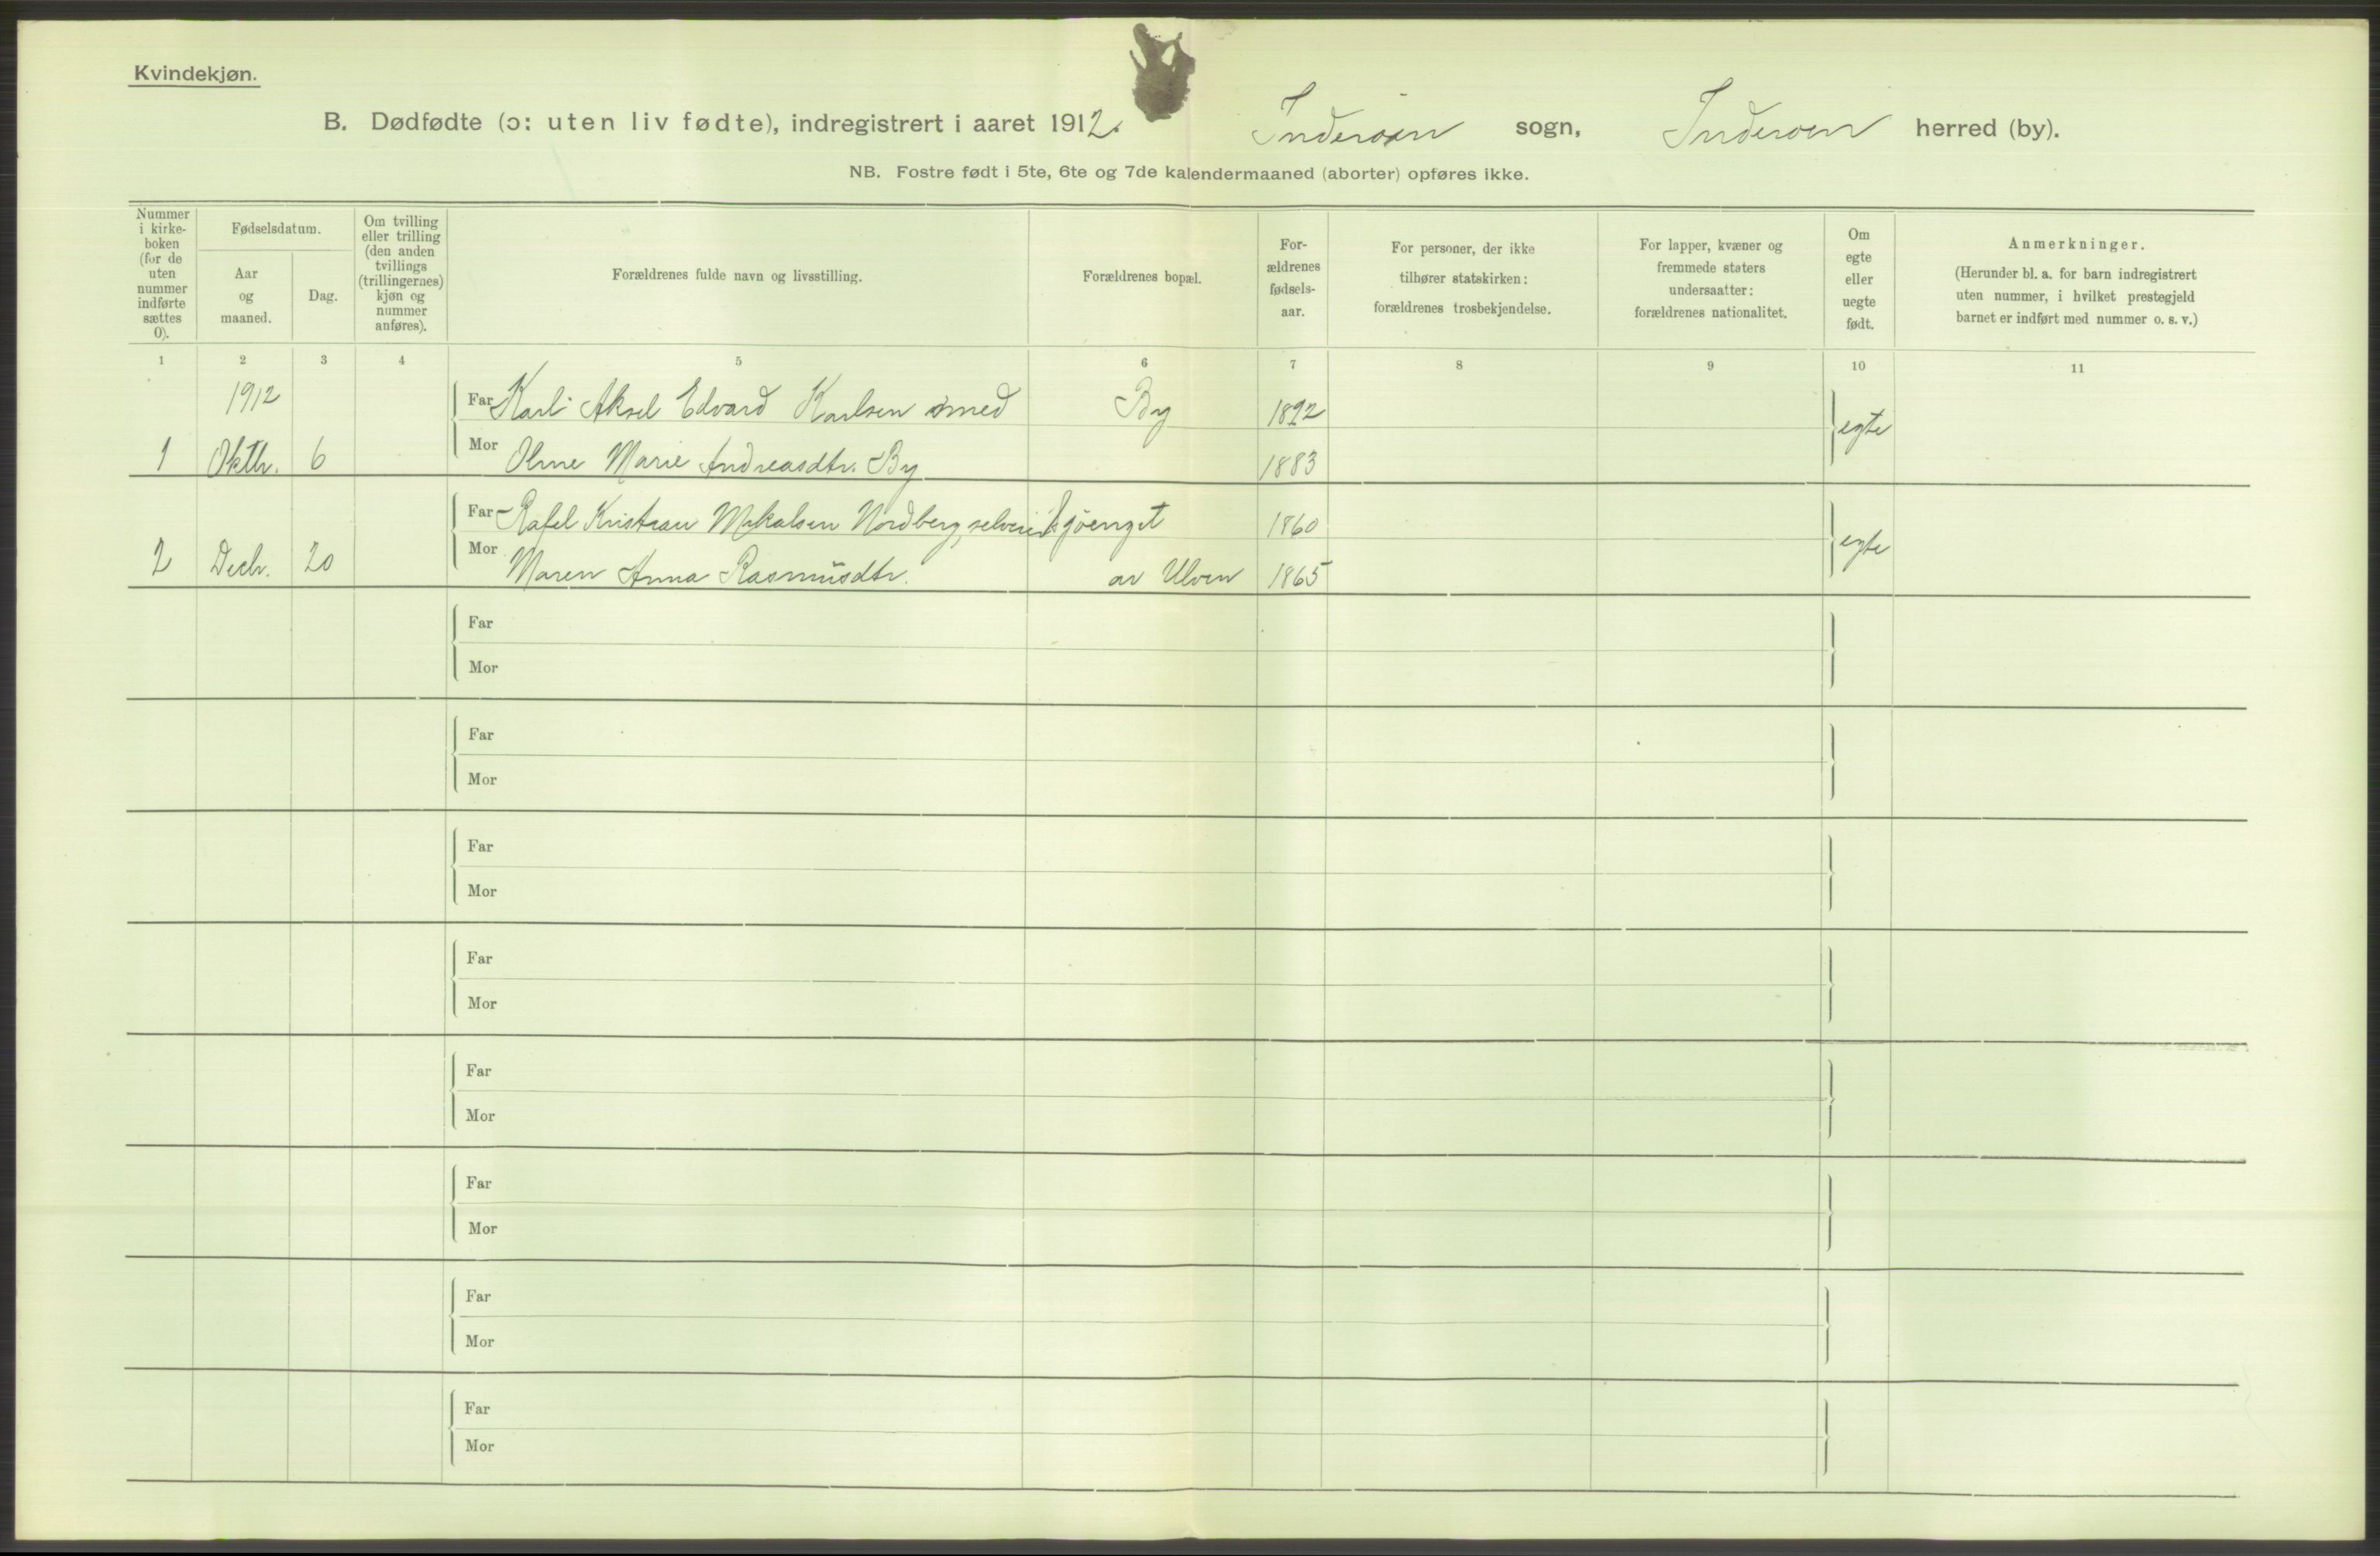 Kvindekjøn.
B. Dødfødte (ɔ: uten liv fødte), indregistrert i aaret 1912. Inderøen sogn, Inderøen herred (by).
NB. Fostre født i 5te, 6te og 7de kalendermaaned (aborter) opføres ikke.
Nummer i kirke-boken (for de uten nummer indførte sættes 0).
Fødselsdatum.
Aar og maaned.
Dag.
Om tvilling eller trilling (den anden tvillings (trillingernes) kjøn og nummer anføres).
Forældrenes fulde navn og livsstilling.
Forældrenes bopæl.
For-ældrenes fødsels-aar.
For personer, der ikke tilhører statskirken: forældrenes trosbekjendelse.
For lapper, kvæner og fremmede staters undersaatter: forældrenes nationalitet.
Om egte eller uegte født.
Anmerkninger.
(Herunder bl. a. for barn indregistrert uten nummer, i hvilket prestegjeld barnet er indført med nummer o. s. v.)
1 2 3 4 5 6 7 8 9 10 11
1912 Far Karl Aksel Edvard Karlsen smed By egte
1 Oktbr. 6 Mor Oline Marie Andreasdtr. By 1883
Far Rafel Kristian Mikalsen Nordberg, 1860 egte
2 Decbr. 20 Mor Maren Anna Rasmusdtr. av Ulven 1865
Far
Mor
Far
Mor
Far
Mor
Far
Mor
Far
Mor
Far
Mor
Far
Mor
Far
Mor